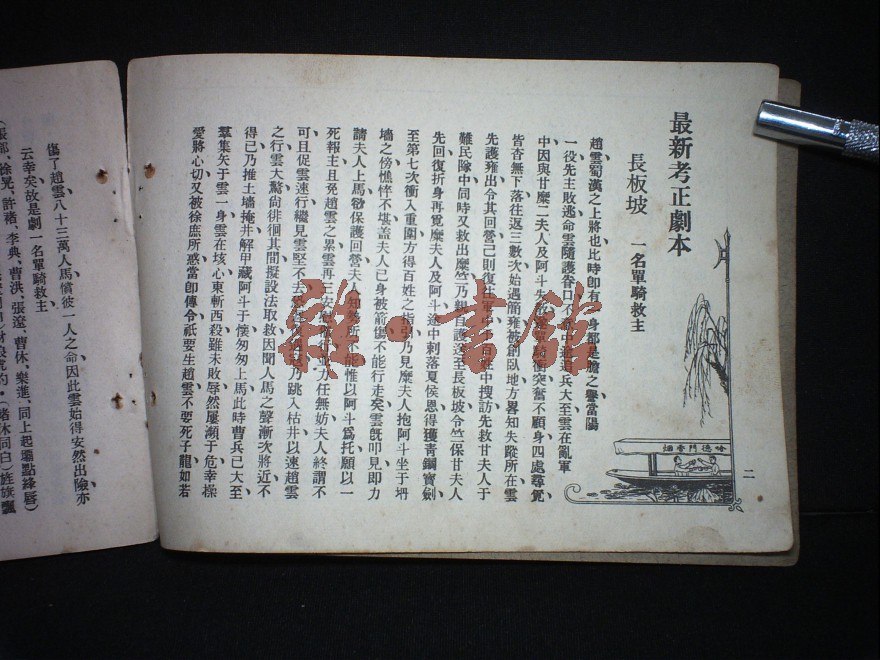 最新考正劇本
長板坡 一名單騎救主
趙雲蜀漢之上將也比時卽有一身都是膽之譽當陽
一役先主敗逃命雲隨護眷口不
追兵大至雲在亂軍
中因與甘糜二夫人及阿斗失
單騎衝突奮不顧身四處尋覓
皆杳無下落往返三數次始遇簡雍被創臥地方畧知失蹤所在雲
先護雍出令其回營己則復
軍中
百姓中搜訪先救甘夫人于
難民隊中同時又救出糜竺乃親自護送至長板坡令竺保甘夫人
先回復折身再覓糜夫人及阿斗途中刺落夏侯恩得獲靑鋼寶劍
至第七次衝入重圍方得百姓之指引乃見糜夫人抱阿斗坐于坍
墻之傍憔悴不堪蓋夫人已身被箭傷不能行走矣雲旣叩見卽力
請夫人上馬欲保護回營夫人知勢所不能惟以阿斗爲托願以一
死報主且免趙雲之累雲再三
力任無妨夫人終謂不
可且促雲速行繼見雲堅不去
跳入枯井以速趙雲
之行雲大驚尙徘徊其間擬設法取救因聞人馬之聲漸次將近不
得已乃推土墻掩井解甲藏阿斗于懷匆匆上馬此時曹兵已大至
羣集矢于雲一身雲在垓心東斬西殺雖未敗辱然屢瀕于危幸操
愛將心切又被徐庶所惑當卽傳令祇要生趙雲不要死子龍如若
二
哈德門香烟
雜·書館
傷了趙雲八十三萬人馬償彼一人之命因此雲始得安然出險亦
云幸矣故是劇一名單騎救主
(張郃、徐晃、許褚、李典、曹洪、張遼、曹休、樂進、同上起壩點絳唇)